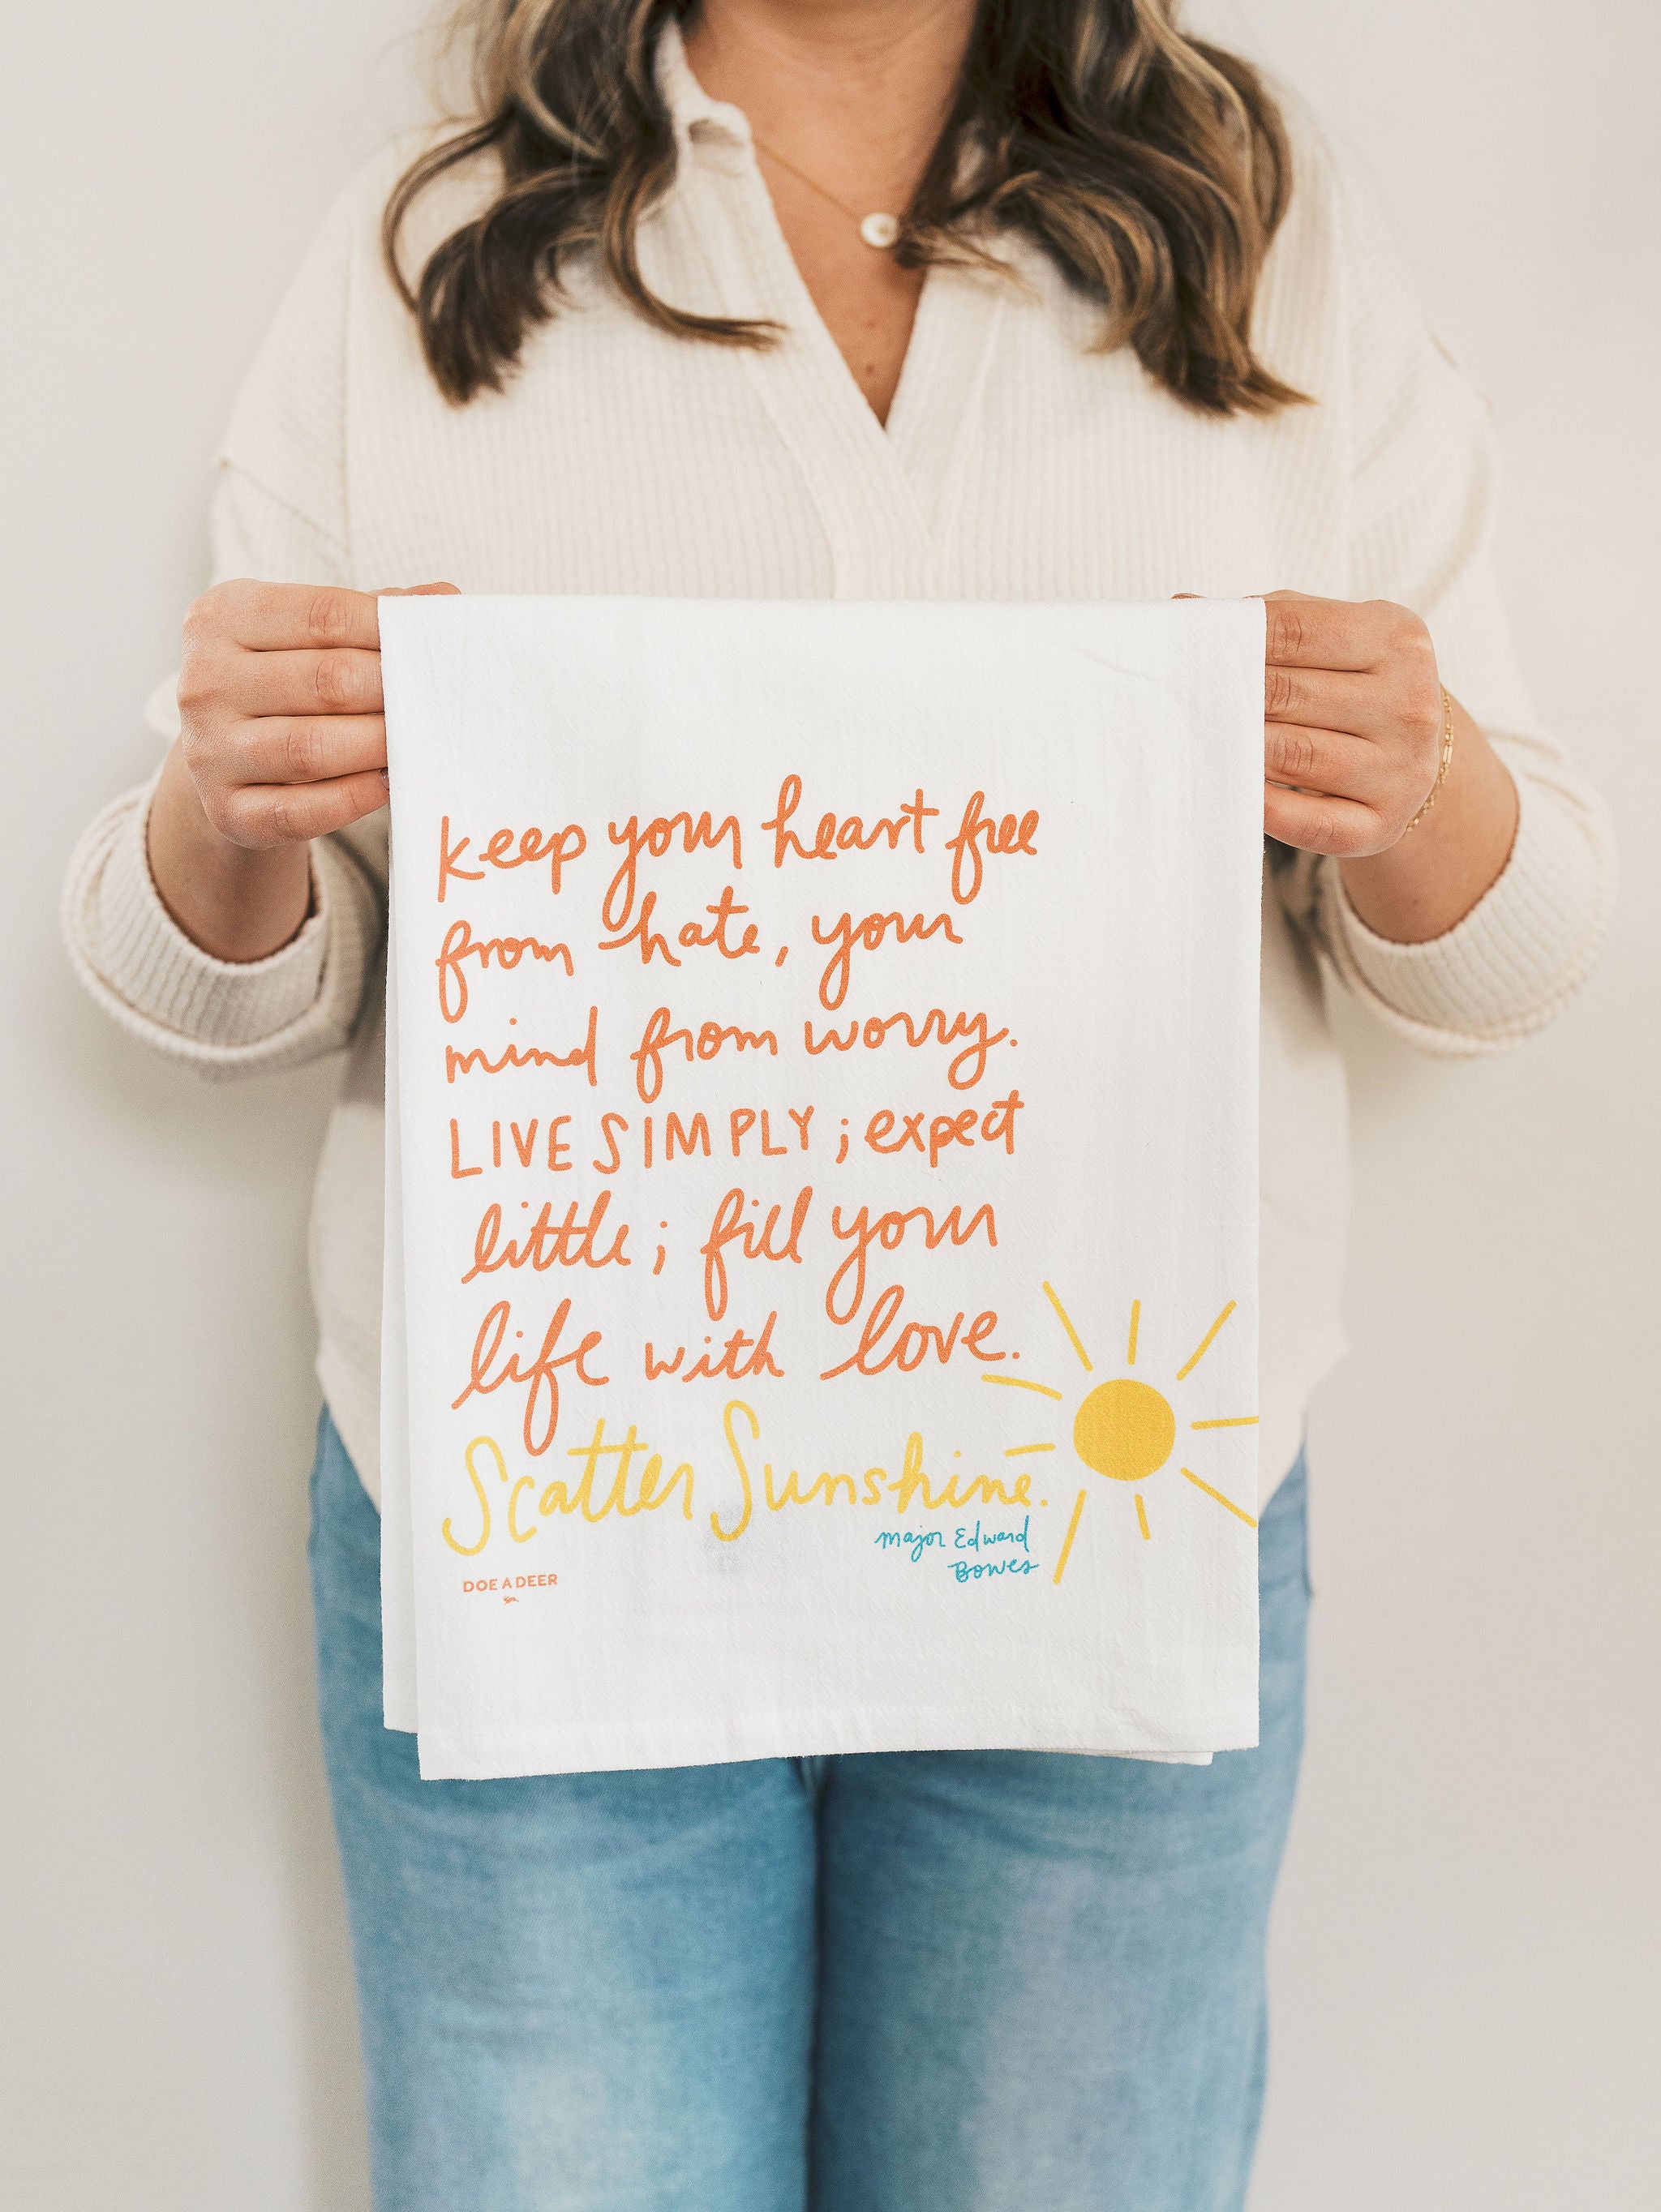 keep your heart free
from hate, your
mind from worry.
LIVE SIMPLY; expect
little; fill your
life with love.
Scatter Sunshine.
major Edward
Bowes
DOE A DEER